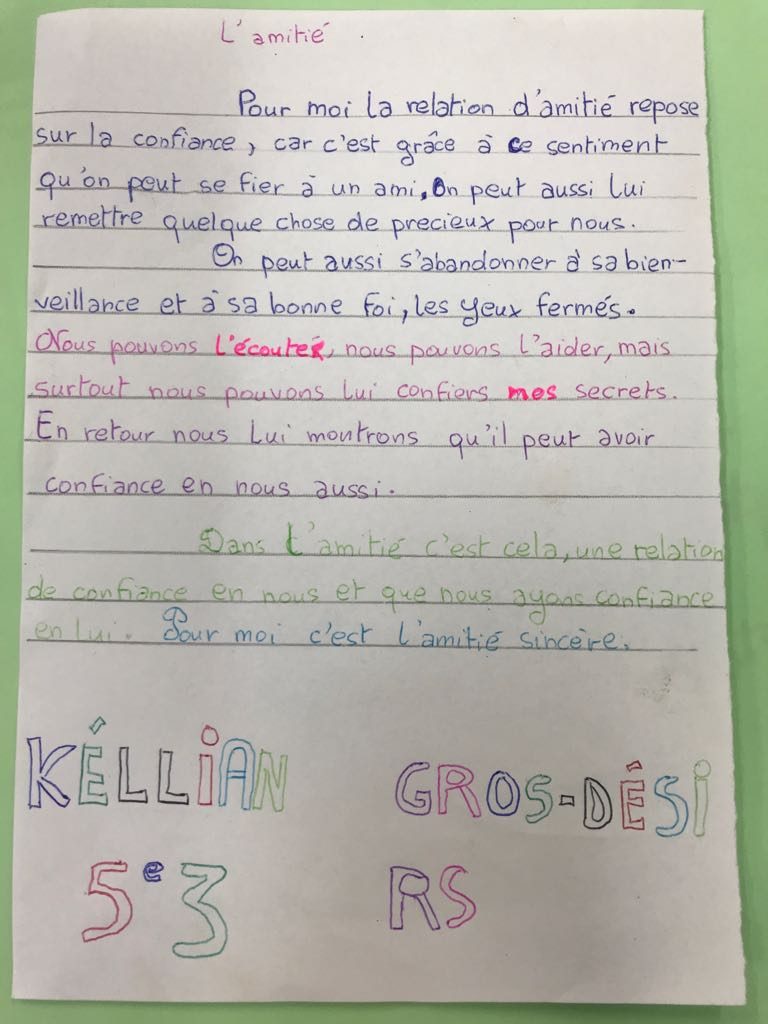 L'amitié
Pour moi la relation d'amitié repose
sur la confiance, car c'est grâce à ce sentiment
qu'on peut se fier à un ami. On peut aussi lui
remettre quelque chose de precieux pour nous.
On peut aussi s'abandonner à sa bien-
veillance et à sa bonne foi, les yeux fermés.
Nous pouvons l'écouter, nous pouvons l'aider, mais
surtout nous pouvons lui confiers mes secrets.
En retour nous lui montrons qu'il peut avoir
confiance en nous aussi.
Dans l'amitié c'est cela, une relation
de confiance en nous et que nous ayons confiance
en lui. Pour moi c'est l'amitié sincère.
KÉLLIAN GROS-DÉSI
5e3 RS